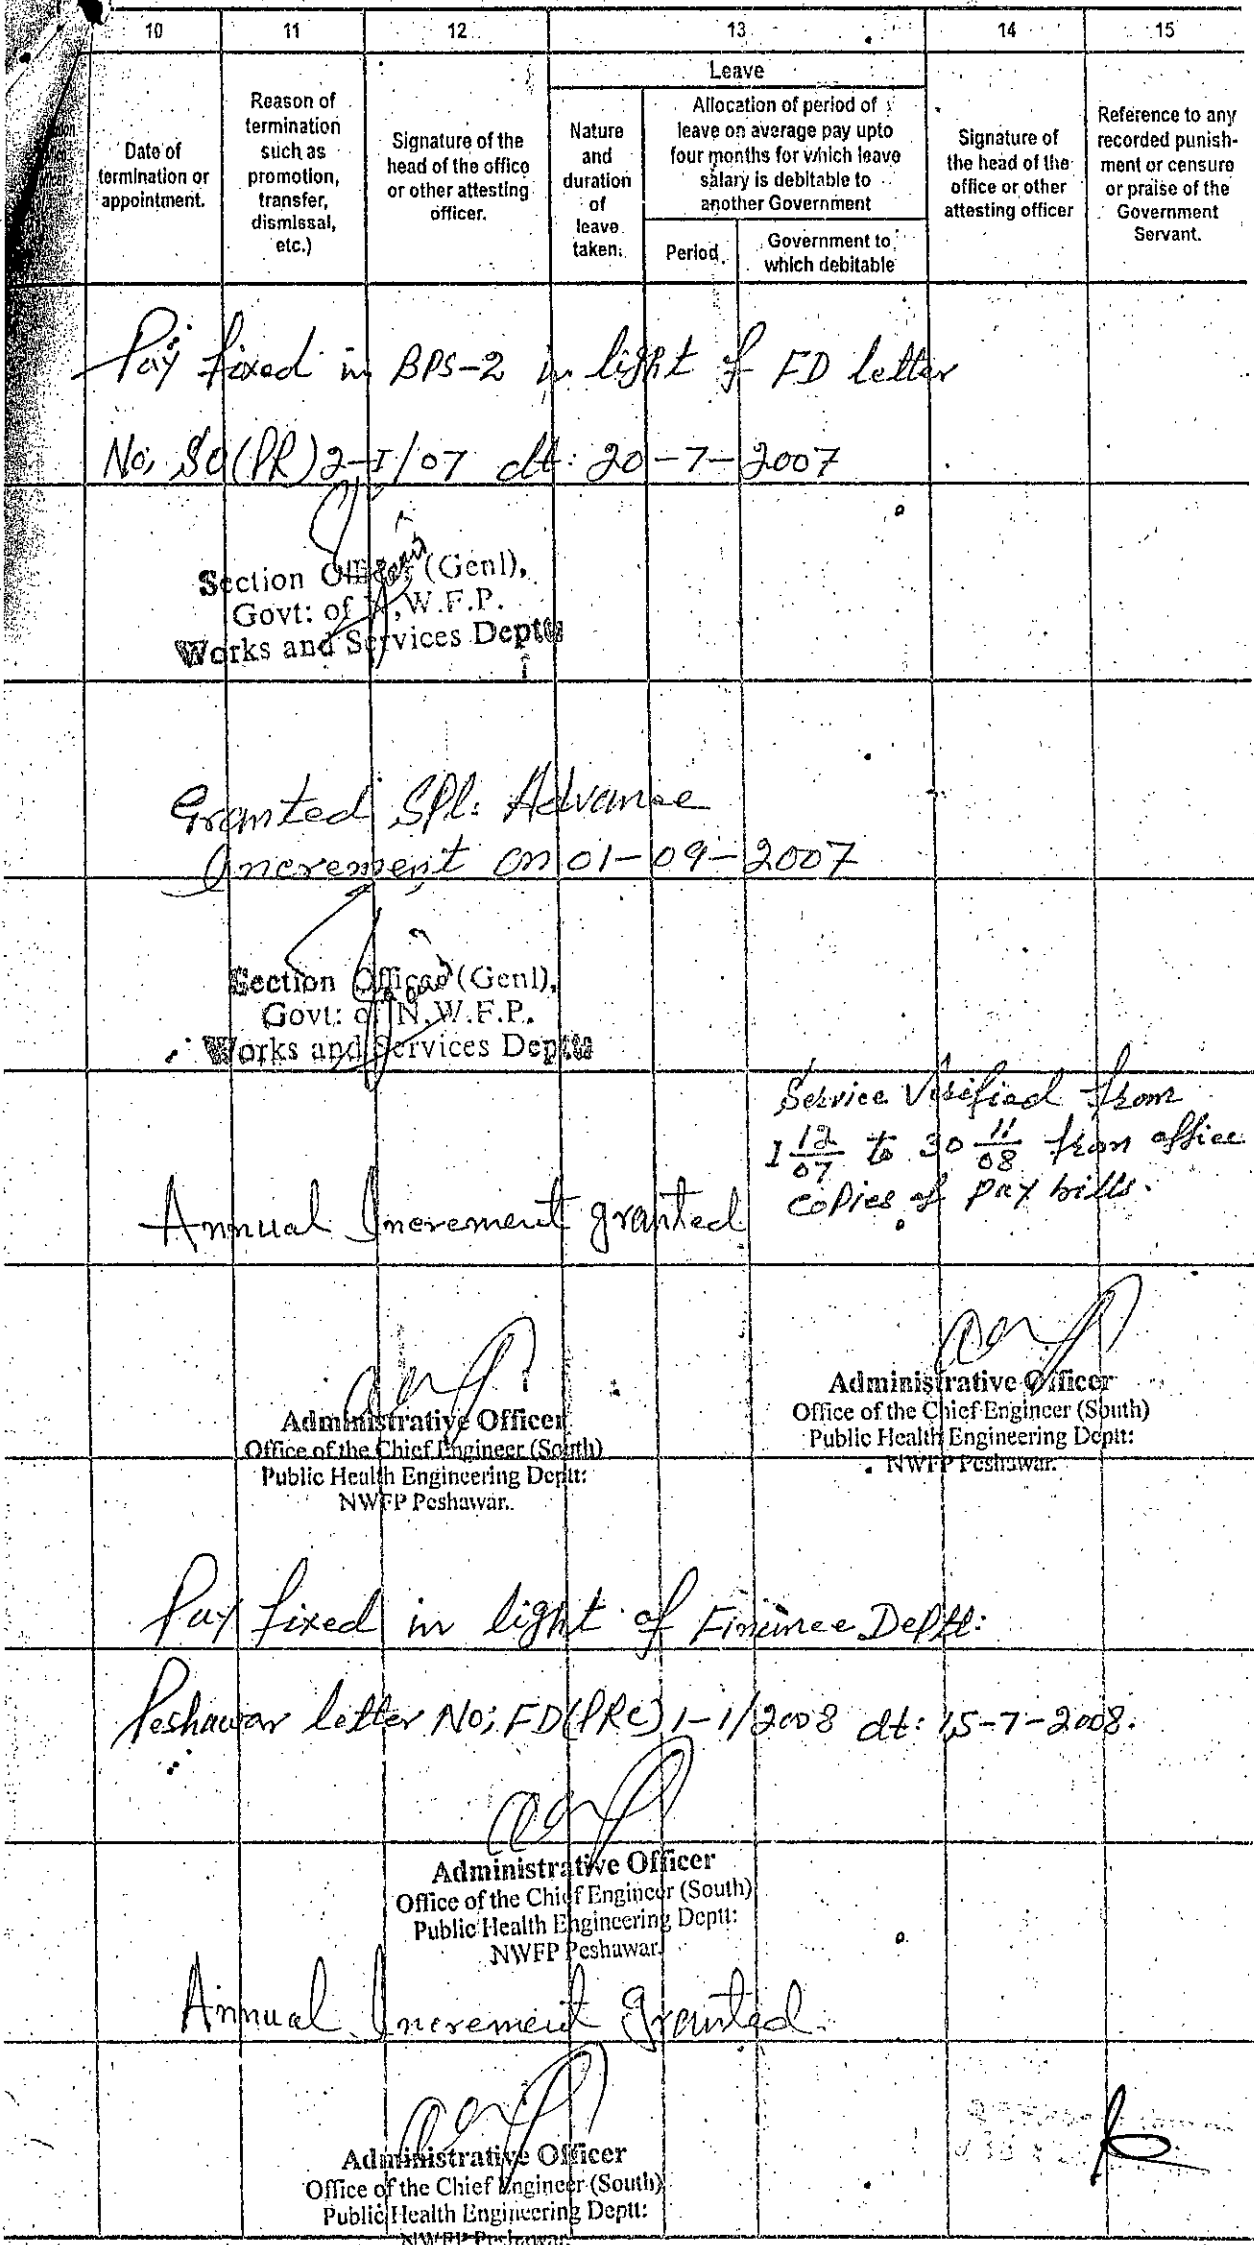 10 11 12 13 14 15
Date of
termination or
appointment.
Reason of
termination
such as
promotion,
transfer,
dismissal,
etc.)
Signature of the
head of the office
or other attesting
officer.
Leave
Nature
and
duration
of
leave
taken.
Allocation of period of
leave on average pay upto
four months for which leave
salary is debitable to
another Government
Period
Government to
which debitable
Signature of
the head of the
office or other
attesting officer
Reference to any
recorded punish-
ment or censure
or praise of the
Government
Servant.
Pay fixed in BPS-2 in light of FD letter
No; SO(PR)2-I/07 dt: 20-7-2007
Section Officer (Genl),
Govt: of N.W.F.P.
Works and Services Deptt:
Granted Spl: Advance
Increment on 01-09-2007
Section Officer (Genl),
Govt: of N.W.F.P.
Works and Services Deptt:
Service Verified from
1 12/07 to 30 11/08 from office
copies of pay bills.
Annual Increment granted
Administrative Officer
Office of the Chief Engineer (South)
Public Health Engineering Deptt:
NWFP Peshawar.
Administrative Officer
Office of the Chief Engineer (South)
Public Health Engineering Deptt:
NWFP Peshawar.
Pay fixed in light of Finance Deptt:
Peshawar letter No; FD(PRC)1-1/2008 dt: 15-7-2008.
Administrative Officer
Office of the Chief Engineer (South)
Public Health Engineering Deptt:
NWFP Peshawar.
Annual Increment Granted.
Administrative Officer
Office of the Chief Engineer (South)
Public Health Engineering Deptt:
NWFP Peshawar.